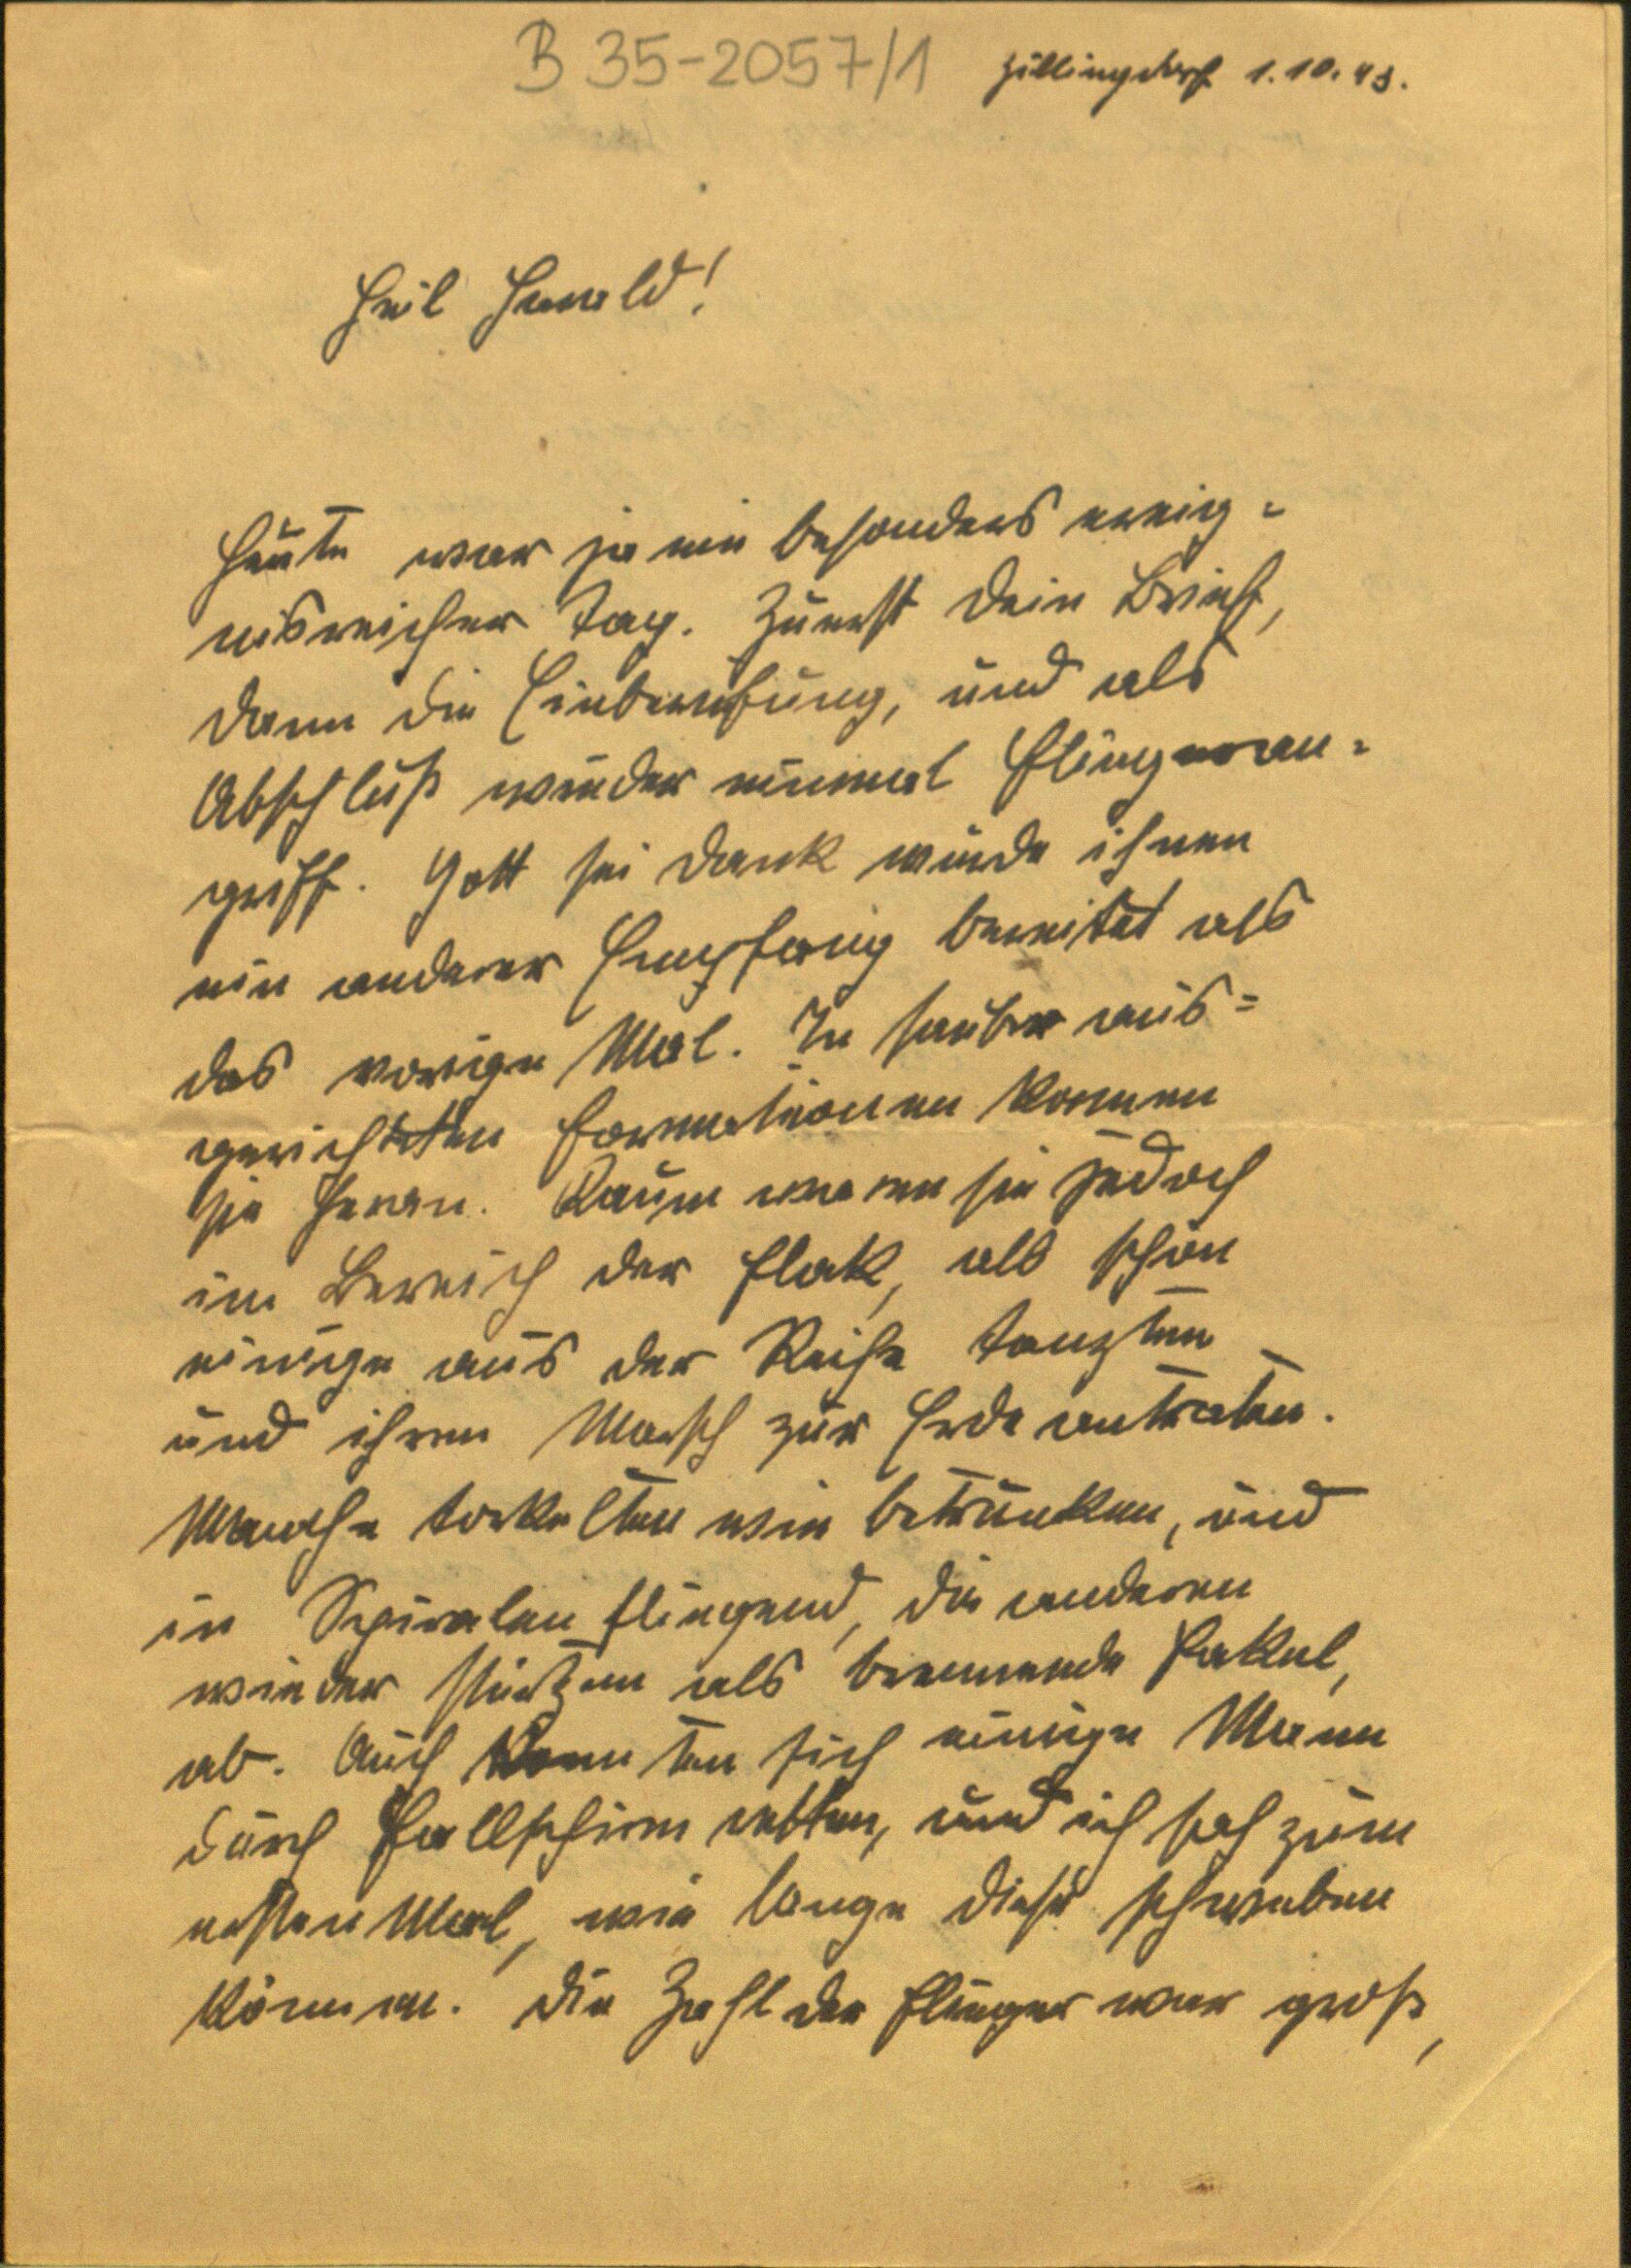 B 35-2057/1
Zillingdorf 1.10.43.
Heil Harald!
Heute war ja ein besonders ereig=
nisreicher Tag. Zuerst dein Brief,
dann die Einberufung, und als
Abschluß wieder einmal Flieger an=
griff. Gott sei dank wurde ihnen
ein anderer Empfang bereitet als
das vorige Mal. In sauber aus=
gerichteten Formationen kommen
sie heran. Kaum waren sie jedoch
im Bereich der Flak, als schon
einige aus der Reihe tanzten
und ihren Marsch zur Erde antraten.
Manche torkelten wie betrunken, und
in Spiralen fliegend, die anderen
wieder stürtzen als brennende Fakel,
ab. Auch konnten sich einige Mann
durch Fallschirm retten, und ich sah zum
ersten Mal, wie lange diese schweben
können. Die Zahl der Flieger war groß,